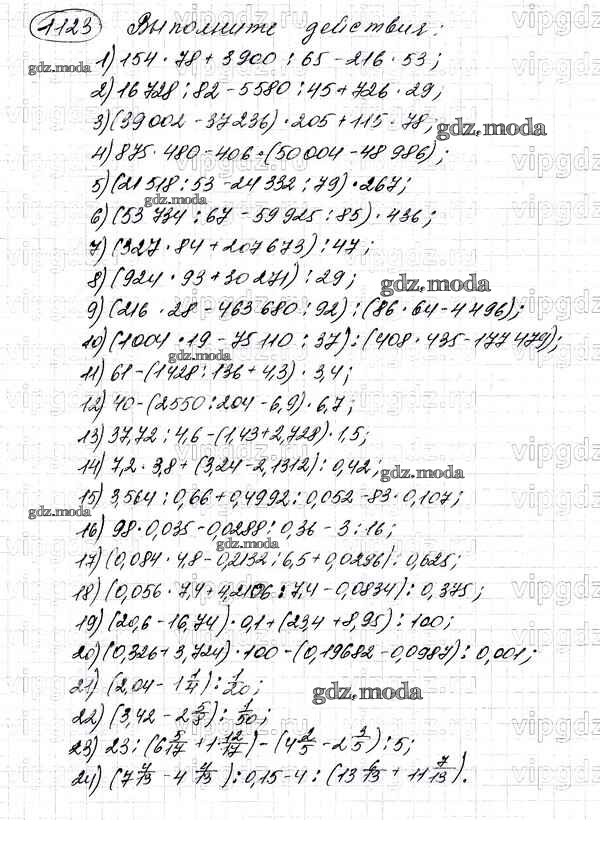 1123 Выполните действия:
1) 154 · 78 + 3900 : 65 - 216 · 53;
2) 16728 : 82 - 5580 : 45 + 726 · 29;
3) (39002 - 37236) · 205 + 115 · 78;
4) 875 · 480 - 406 · (50004 - 48986);
5) (21518 : 53 - 24332 : 79) · 267;
6) (53734 : 67 - 59925 : 85) · 436;
7) (327 · 84 + 207673) : 47;
8) (924 · 93 + 30271) : 29;
9) (216 · 28 - 463680 : 92) : (86 · 64 - 4496);
10) (1004 · 19 - 75110 : 37) : (408 · 435 - 177479);
11) 61 - (1428 : 136 + 4,3) · 3,4;
12) 40 - (2550 : 204 - 6,9) · 6,7;
13) 37,72 : 4,6 - (1,43 + 2,728) · 1,5;
14) 7,2 · 3,8 + (3,24 - 2,1312) : 0,42;
15) 3,564 : 0,66 + 0,4992 : 0,052 - 83 · 0,107;
16) 98 · 0,035 - 0,0288 : 0,36 - 3 : 16;
17) (0,084 · 4,8 - 0,2132 : 6,5 + 0,0296) : 0,625;
18) (0,056 · 7,4 + 4,2106 : 7,4 - 0,0834) : 0,375;
19) (20,6 - 16,74) · 0,1 + (23,4 + 8,95) : 100;
20) (0,326 + 3,724) · 100 - (0,19682 - 0,0987) : 0,001;
21) (2,04 - 1 1/4) : 1/20;
22) (3,42 - 2 5/8) : 1/50;
23) 23 : (6 5/17 + 1 12/17) - (4 2/5 - 2 3/5) : 5;
24) (7 4/13 - 4 4/13) : 0,15 - 4 : (13 6/13 + 11 7/13).
gdz.moda
gdz.moda
gdz.moda
gdz.moda
gdz.moda
gdz.moda
gdz.moda
gdz.moda
gdz.moda
vipgdz.ru